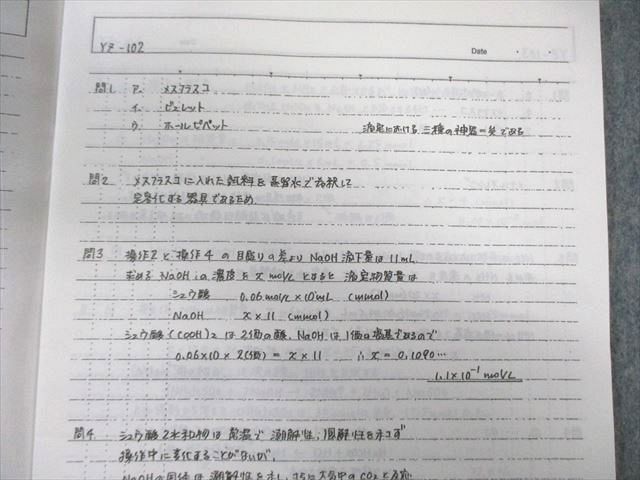 YZ-102
Date
問1 ア. メスフラスコ
イ. ビュレット
ウ. ホールピペット 滴定における三種の神器の一矢である
問2 メスフラスコに入れた試料を蒸留水で希釈して
定容化する器具であるため.
問3 操作2と操作4の目盛りの差より NaOH滴下量は11mL
求める NaOHの濃度を x mol/L とすると 滴定物質量は
シュウ酸 0.06mol/L × 10mL (mmol)
NaOH x × 11 (mmol)
シュウ酸 (COOH)2 は 2価の酸, NaOHは1価の塩基であるので
0.06×10 × 2(価) = x × 11 ∴ x = 0.1090…
1.1×10⁻¹ mol/L
問4 シュウ酸2水和物は常温で潮解性, 風解性を示さず
操作中に変化することがないが,
NaOHの固体は潮解性を示し, さらに大気中のCO2と反応